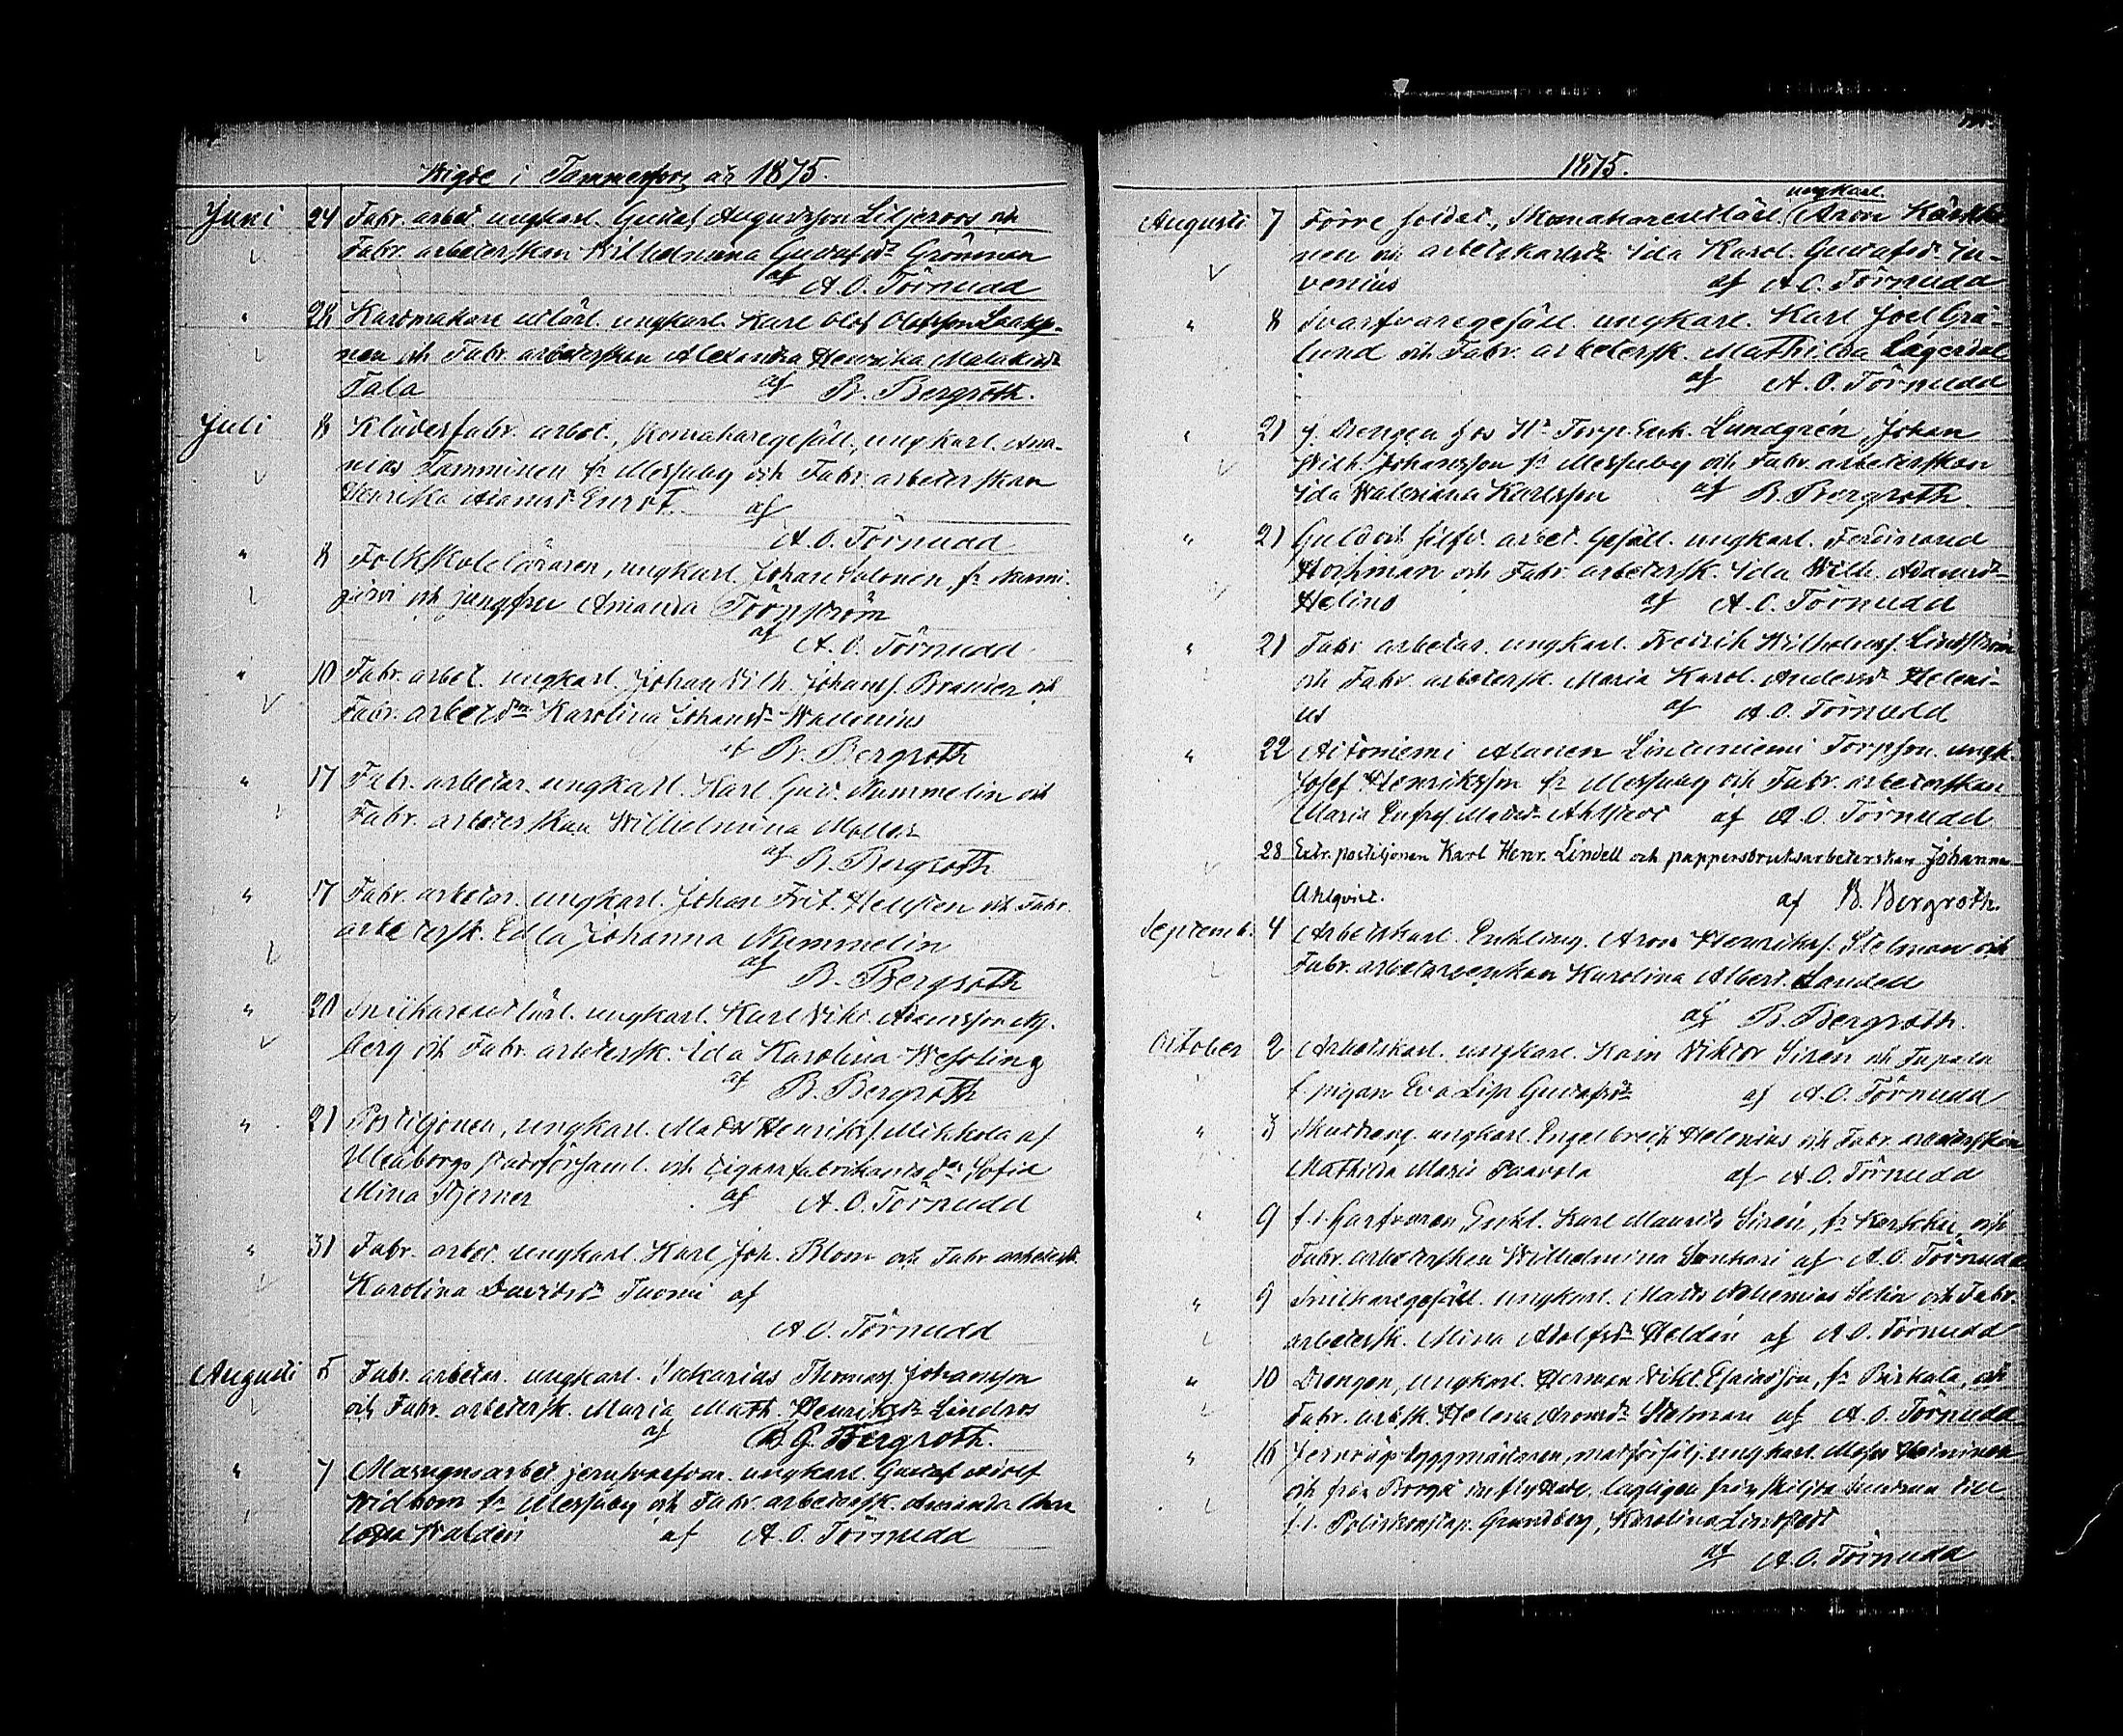 Wigde i Tammerfors år 1875.
Juni 24 Fabr. arbet. ungkarl. Gustaf Augustsson Liljeroos och
Fabr. arbeterskan Wilhelmina Gustafsdr Grönman
af A. O. Törnudd
" 28 Karl Olof Olofsson Laakso-
nen och Fabr. arbeterskan Alexandra Henrika
Tala af B. Bergroth.
Juli 8 Klädesfabr. arbet., Skomakaregesäll, ungkarl. Ana-
nias Tamminen fr Messuby och Fabr. arbeterskan
Henrika Adamsdr af
A. O. Törnudd
" 8 Folkskoleläraren, ungkarl. Johan Salonen, fr Nurmi-
järvi och jungfru Amanda Törnström
af A. O. Törnudd
" 10 Fabr. arbet. ungkarl. Johan Wilh. Johanss. Brander och
Fabr. Karolina Johansdr Wallenius
af B. Bergroth
" 17 Fabr. arbetar. ungkarl. Karl Gust. Nummelin och
Fabr. arbeterskan Wilhelmina
af B. Bergroth
" 17 Fabr. arbetar. ungkarl. Johan Frit. Hellsten och Fabr.
arbetersk. Edla Johanna Nummelin
af B. Bergroth
" 20 Snickareutlärl. ungkarl. Karl Vikt. Adamsson Ny-
berg och Fabr. arbetersk. Ida Karolina Wessling
af B. Bergroth
" 21 Postiljonen, ungkarl. Mats Henrikss. Mikkola af
Uleåborgs stadsförsaml. och Cigarrfabrikants dr Sofia
Mina Stjerner af A. O. Törnudd
" 31 Fabr. arbet. ungkarl. Karl Joh. Blom och Fabr. arbetersk.
Karolina Davidsdr Tuomi af
A. O. Törnudd
Augusti 5 Fabr. arbetar. ungkarl. Sakarias Thomas Johansson
och Fabr. arbetersk. Maria Math. Henriksdr Lindros
af B. G. Bergroth.
" 7 Masugnsarbet. ungkarl. Gustaf Adolf
Widbom fr Messuby och Fabr. arbetersk. Amanda
Waldén af A. O. Törnudd
1875.
ungkarl.
Augusti 7 Förre soldat., Skomakareutlärl. Aron Kärkki-
nen och arbetskarlsdr Ida Karol. Gustafsdr Ju-
venius af A. O. Törnudd
" 8 Svarfvaregesäll. ungkarl. Karl Joel Grö-
lund och Fabr. arbetersk. Mathilda Lagerdal
af A. O. Törnudd
" 21 f. drengen hos Lundgrén, Johan
Wilh. Johansson fr Messuby och Fabr. arbeterskan
Ida Walesiana Karlsson af B. Bergroth.
" 21 Guld och silfv. arbet. Gesäll. ungkarl. Ferdinand
och Fabr. arbetersk. Ida Wilh. Adamsdr
Helin af A. O. Törnudd
" 21 Fabr. arbetar. ungkarl. Fredrik Wilhelmss. Lindström
och Fabr. arbetersk. Maria Karol. Andersdr Heleni-
us af A. O. Törnudd
" 22 Aitoniemi Alanen Lintuniemi Torpson. ungk.
Josef Henriksson fr Messuby och Fabr. arbeterskan
Maria Matsdr Ahlstedt af A. O. Törnudd
28 Extr. postiljonen Karl Henr. Lindell och pappersbruksarbeterskan Johanna
Ahlqvist. af B. Bergroth.
Septemb. 4 Arbetskarl. Enkling. Aron Henrikss. Stelman och
Fabr. Karolina Albert. Sandell
af B. Bergroth.
October 2 Arbetskarl. ungkarl. Kain Viktor Sirén och
f. pigan Eva Lisa Gustafsdr af A. O. Törnudd
" 3 ungkarl. Engelbrecht Helenius och Fabr. arbeterskan
Mathilda Maria Paavola af A. O. Törnudd
" 9 f. d. Enkl. Karl Maurits Sirén, fr och
Fabr. arbeterskan Wilhelmina Sankari af A. O. Törnudd
" 9 Snickaregesäll. ungkarl. Matts Nehemias Selin och Fabr.
arbetersk. Mina Adolfsdr Heldén af A. O. Törnudd
" 10 Drengen, ungkarl. Herman Vikt. Esaiasson, fr Birkala, och
Fabr. arbsk. Helena Aronsdr Stelman af A. O. Törnudd
" 16 ungkarl. Heininen
och från Borgå inflyttade lagligen frånskiljda hustrun till
f. d. Poliskonstap. Grundberg, Karolina Lindstedt
af A. O. Törnudd